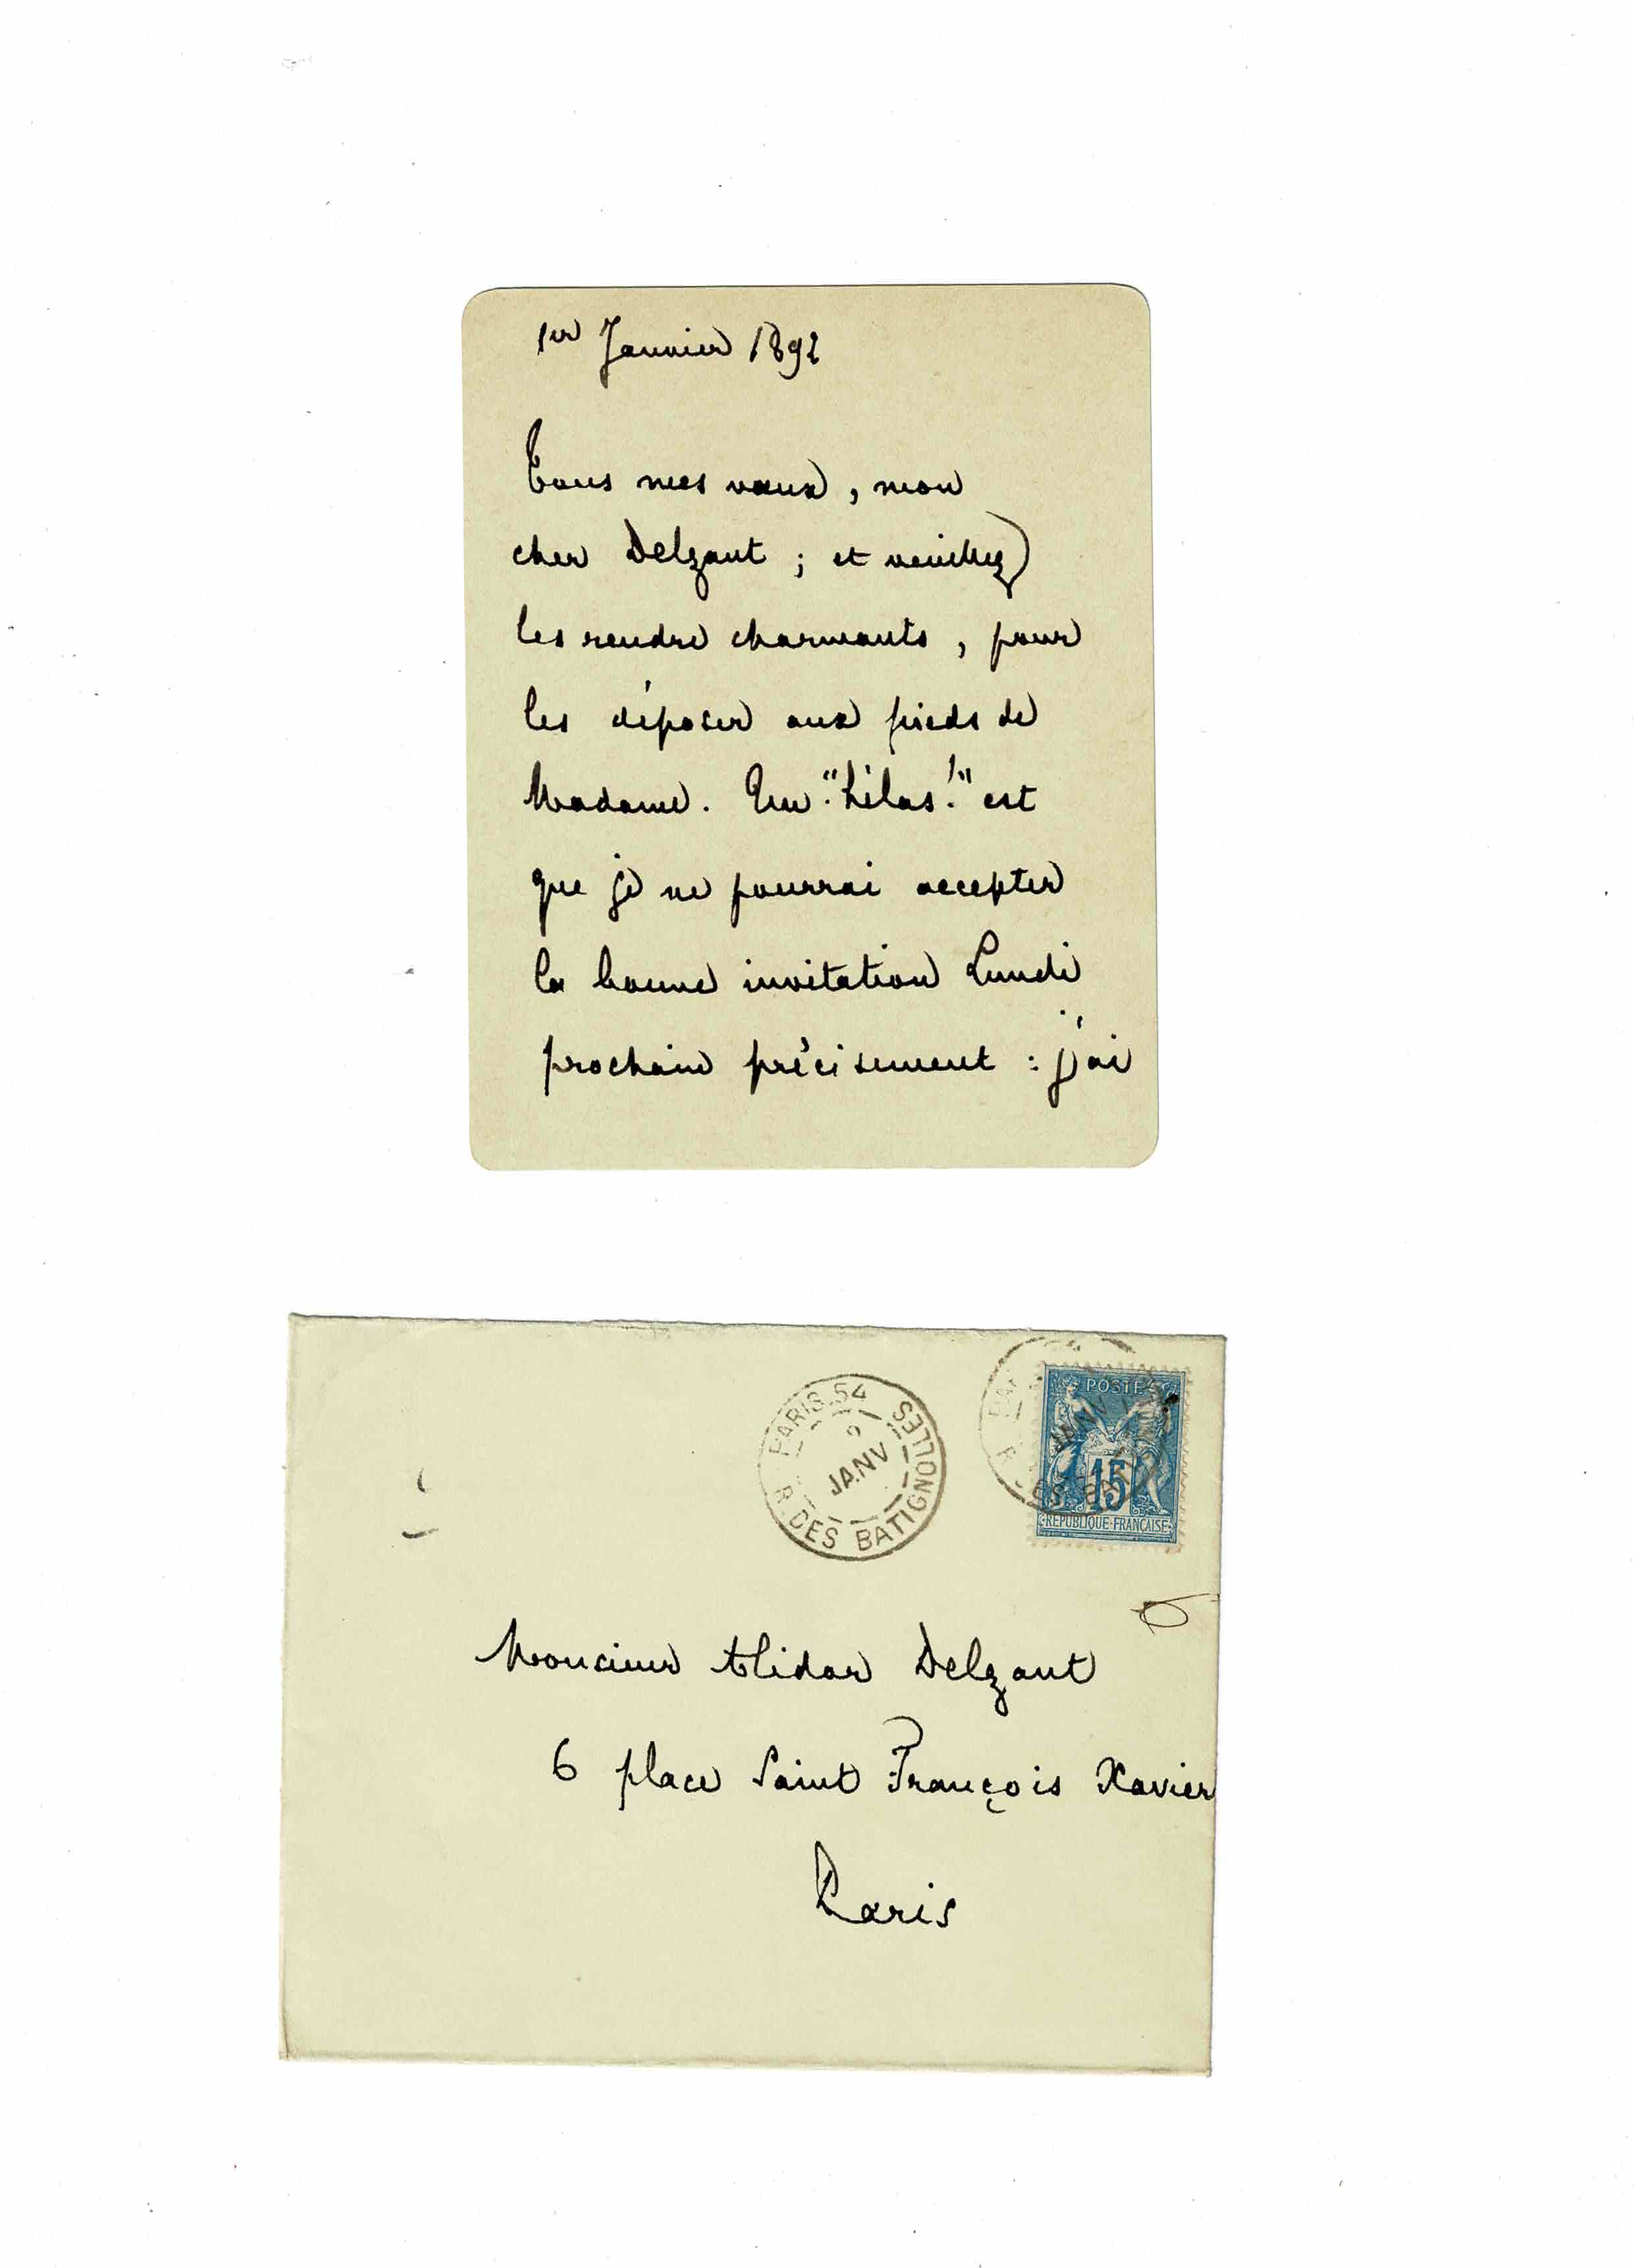 1er Janvier 1892
Tous mes vœux, mon
cher Delzant ; et veuillez
les rendre charmants, pour
les déposer aux pieds de
Madame. Un "hélas!" est
que je ne pourrai accepter
la bonne invitation Lundi
prochain précisément : j'ai
PARIS 54
JANV
R. DES BATIGNOLLES
POSTES
JANV
15
REPUBLIQUE FRANÇAISE
Monsieur Alidor Delzant
6 place Saint François Xavier
Paris